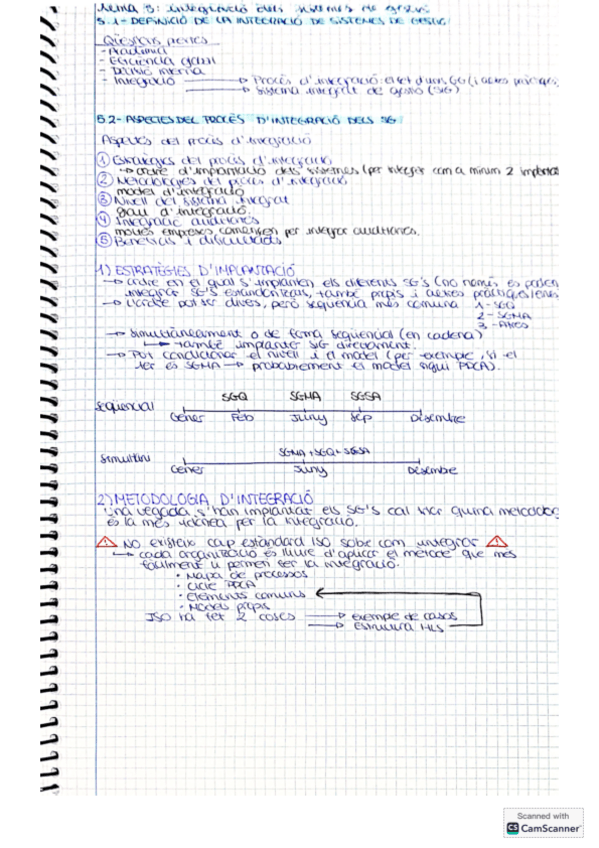 Tema 5: Integració dels sistemes de gestió
5.1- DEFINICIÓ DE LA INTEGRACIÓ DE SISTEMES DE GESTIÓ
Qüestions prèvies
- Acadèmica
- Eficiència global
- Decisió interna
- Integració → Procés d'integració: el fet d'unir SG (i altres pràctiques)
→ Sistema integrat de gestió (SIG)
5.2- ASPECTES DEL PROCÉS D'INTEGRACIÓ DELS SG
Aspectes del procés d'integració
① Estratègies del procés d'integració
→ ordre d'implantació dels sistemes (per integrar com a mínim 2 implantats
② Metodologies del procés d'integració
model d'integració
③ Nivell del sistema integrat
grau d'integració.
④ Integració auditories
moltes empreses comencen per integrar auditories.
⑤ Beneficis i dificultats
1) ESTRATÈGIES D'IMPLANTACIÓ
→ ordre en el qual s'implanten els diferents SG's (no només es poden
integrar SG's estandaritzats, també propis i altres pràctiques/eines
→ L'ordre pot ser divers, però seqüència més comuna 1- SGQ
2- SGMA
3- Altres
→ Simultàneament o de forma seqüencial (en cadena)
→ també implantar SIG directament.
→ Pot condicionar el nivell i el model (per exemple, si el
1er és SGMA → probablement el model sigui PDCA).
SGQ SGMA SGSA
seqüencial
Gener Feb Juny Sep Desembre
SGMA + SGQ + SGSA
Simultani
Gener Juny Desembre
2) METODOLOGIA D'INTEGRACIÓ
Una vegada s'han implantat els SG's cal triar quina metodologia
és la més idònea per la integració.
⚠ NO existeix cap estàndard ISO sobre com integrar ⚠
→ cada organització és lliure d'aplicar el mètode que més
fàcilment li permeti fer la integració.
• Mapa de processos
• Cicle PDCA
• Elements comuns
• Models propis
ISO ha fet 2 coses → exemple de casos
→ Estructura HLS
Scanned with
CS CamScanner